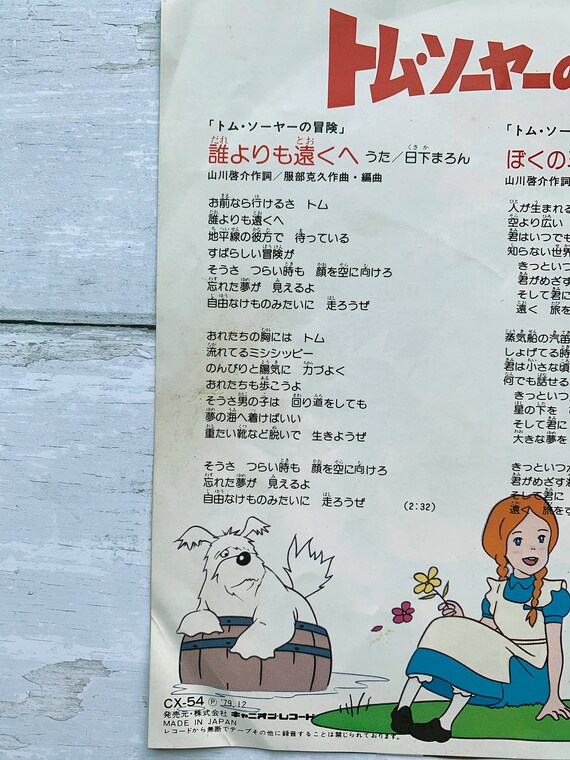 トム・ソーヤーの
「トム・ソーヤーの冒険」
誰よりも遠くへ うた/日下まろん
山川啓介作詞/服部克久作曲・編曲
お前なら行けるさ トム
誰よりも遠くへ
地平線の彼方で 待っている
すばらしい冒険が
そうさ つらい時も 顔を空に向けろ
忘れた夢が 見えるよ
自由なけものみたいに 走ろうぜ
おれたちの胸には トム
流れてるミシシッピー
のんびりと陽気に 力づよく
おれたちも歩こうよ
そうさ男の子は 回り道をしても
夢の海へ着けばいい
重たい靴など脱いで 生きようぜ
そうさ つらい時も 顔を空に向けろ
忘れた夢が 見えるよ
自由なけものみたいに 走ろうぜ
(2:32)
「トム・ソー
ぼくの
山川啓介作詞
人が生まれる
空より広い
君はいつでも
知らない世界
きっといつ
君がめざす
そして君に
遠く 旅を
蒸気船の汽笛
しょげてる時
君は小さな頃
何でも話せる
きっといつ
星の下を
そして君に
大きな夢を
きっといつか
君がめざす
そして君に
遠く 旅をす
CX-54 Ⓟ '79.12
発売元・株式会社 キャニオン・レコード
MADE IN JAPAN
レコードから無断でテープその他に録音することは禁じられております。